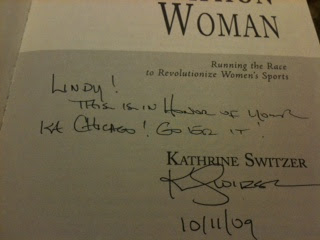 WOMAN
Running the Race
to Revolutionize Women's Sports
LINDY!
THIS IS IN HONOR OF YOUR
CHICAGO! GO FER IT!
KATHRINE SWITZER
K Switzer
10/11/09